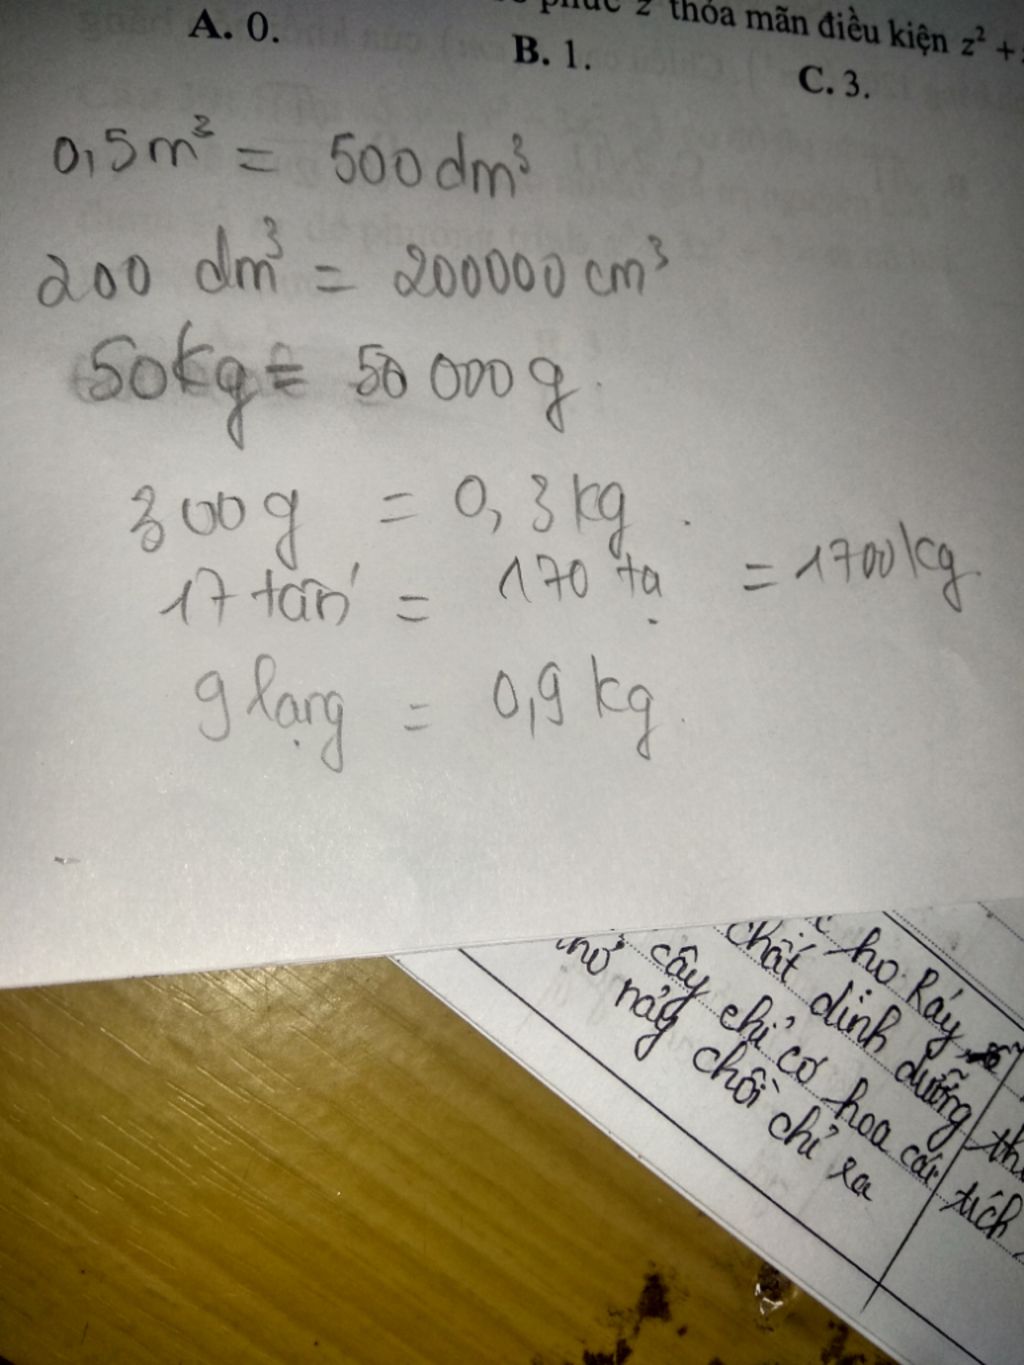 phức z thỏa mãn điều kiện z² +
A. 0. B. 1. C. 3.
0,5m³ = 500dm³
200 dm³ = 200000 cm³
50kg = 50 000 g.
300g = 0,3kg.
17 tấn = 170 tạ = 1700kg.
9 lạng = 0,9 kg.
họ Ráy
chất dinh dưỡng
cây chỉ có hoa cái tích
nảy chồi chỉ ra